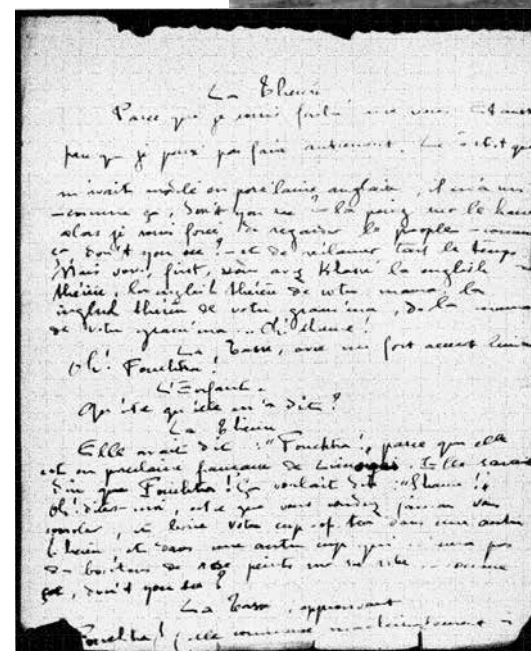 La Théière
Parce que je suis fâchée avec vous. Et aussi
peu que je peux pas faire autrement. L'
m'avait modelé en porcelaine anglaise, il m'a mis
— comme ça, don't you see ? — la poing sur le hanche
alors je suis forcé de regarder le people — comme
ça don't you see ? — et de réclamer tout le temps —
Mais vous, first, vous avez klassé la english
théière, la english théière de votre mama, la
english théière de votre gram'ma, de la mama
de votre gram'ma... Oh ! shame !
La Tasse, avec un fort accent limousin
Oh ! Fouchtra !
L'Enfant.
Qu'est-ce qu'elle en a dit ?
La Théière
Elle avait dit : "Fouchtra !, parce que elle
est en porcelaine française de Limoges. Elle savait
dire que Fouchtra ! Ça voulait dire "Shame !,
Oh ! dites-moi, est-ce que vous voudrez jamais vous
consoler, à boire votre cup of tea dans une autre
théière, et dans une autre cup qui n'aura pas
des boutons de rose peints sur sa robe... comme
ça, don't you see ?
La Tasse, approuvant
Fouchtra ! (elle commence